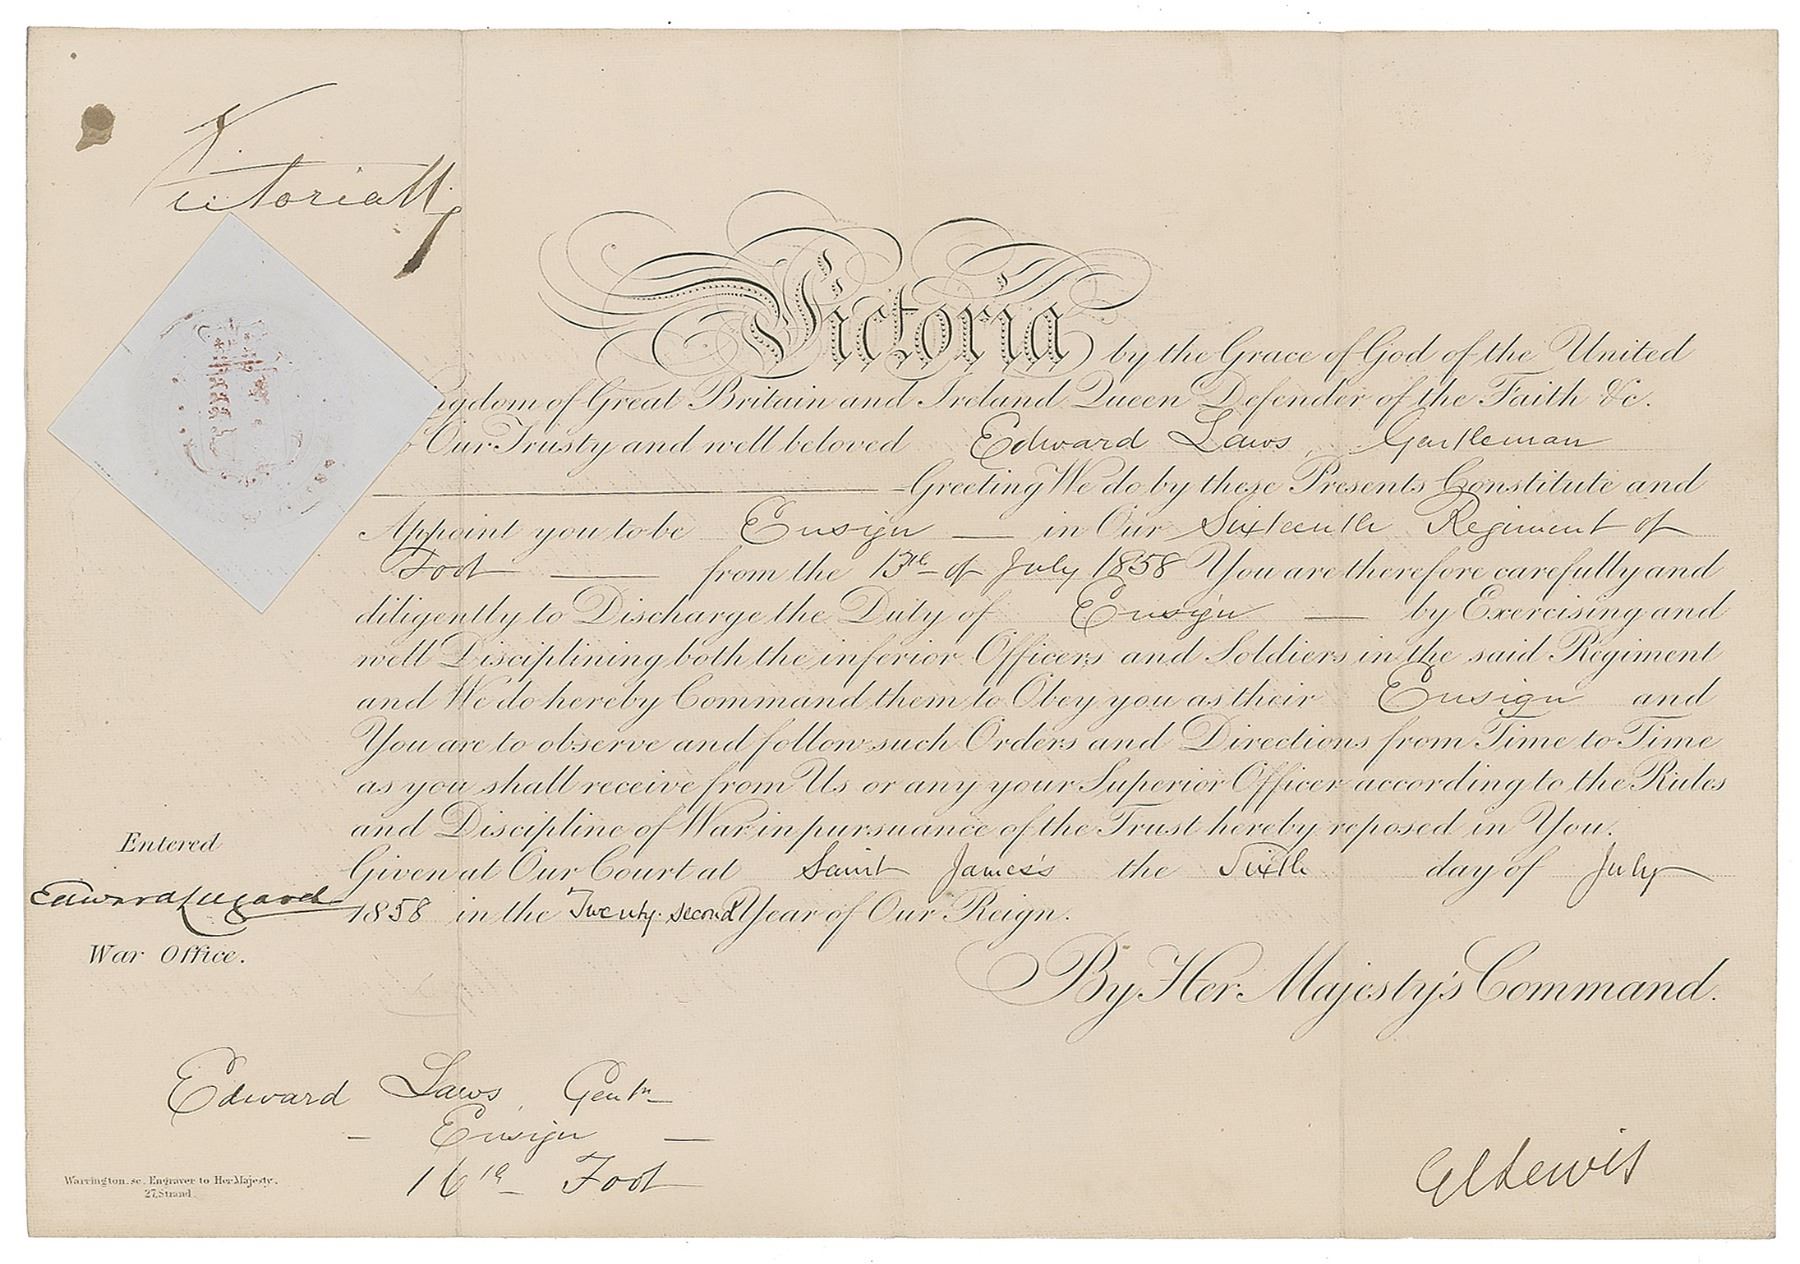 Victoria R
Victoria by the Grace of God of the United
ngdom of Great Britain and Ireland Queen Defender of the Faith &c.
o Our Trusty and well beloved Edward Laws, Gentleman
Greeting We do by these Presents Constitute and
Appoint you to be Ensign — in Our Sixteenth Regiment of
Foot — from the 13th of July 1858 You are therefore carefully and
diligently to Discharge the Duty of Ensign — by Exercising and
well Disciplining both the inferior Officers and Soldiers in the said Regiment
and We do hereby Command them to Obey you as their Ensign and
You are to observe and follow such Orders and Directions from Time to Time
as you shall receive from Us or any your Superior Officer according to the Rules
and Discipline of War in pursuance of the Trust hereby reposed in You.
Given at Our Court at Saint James's the Sixth day of July
1858 in the Twenty second Year of Our Reign.
By Her Majesty's Command.
Entered
Edward Lugard
War Office.
Edward Laws, Gentn
— Ensign —
16th Foot
G C Lewis
Warrington. sc. Engraver to Her Majesty.
27, Strand.